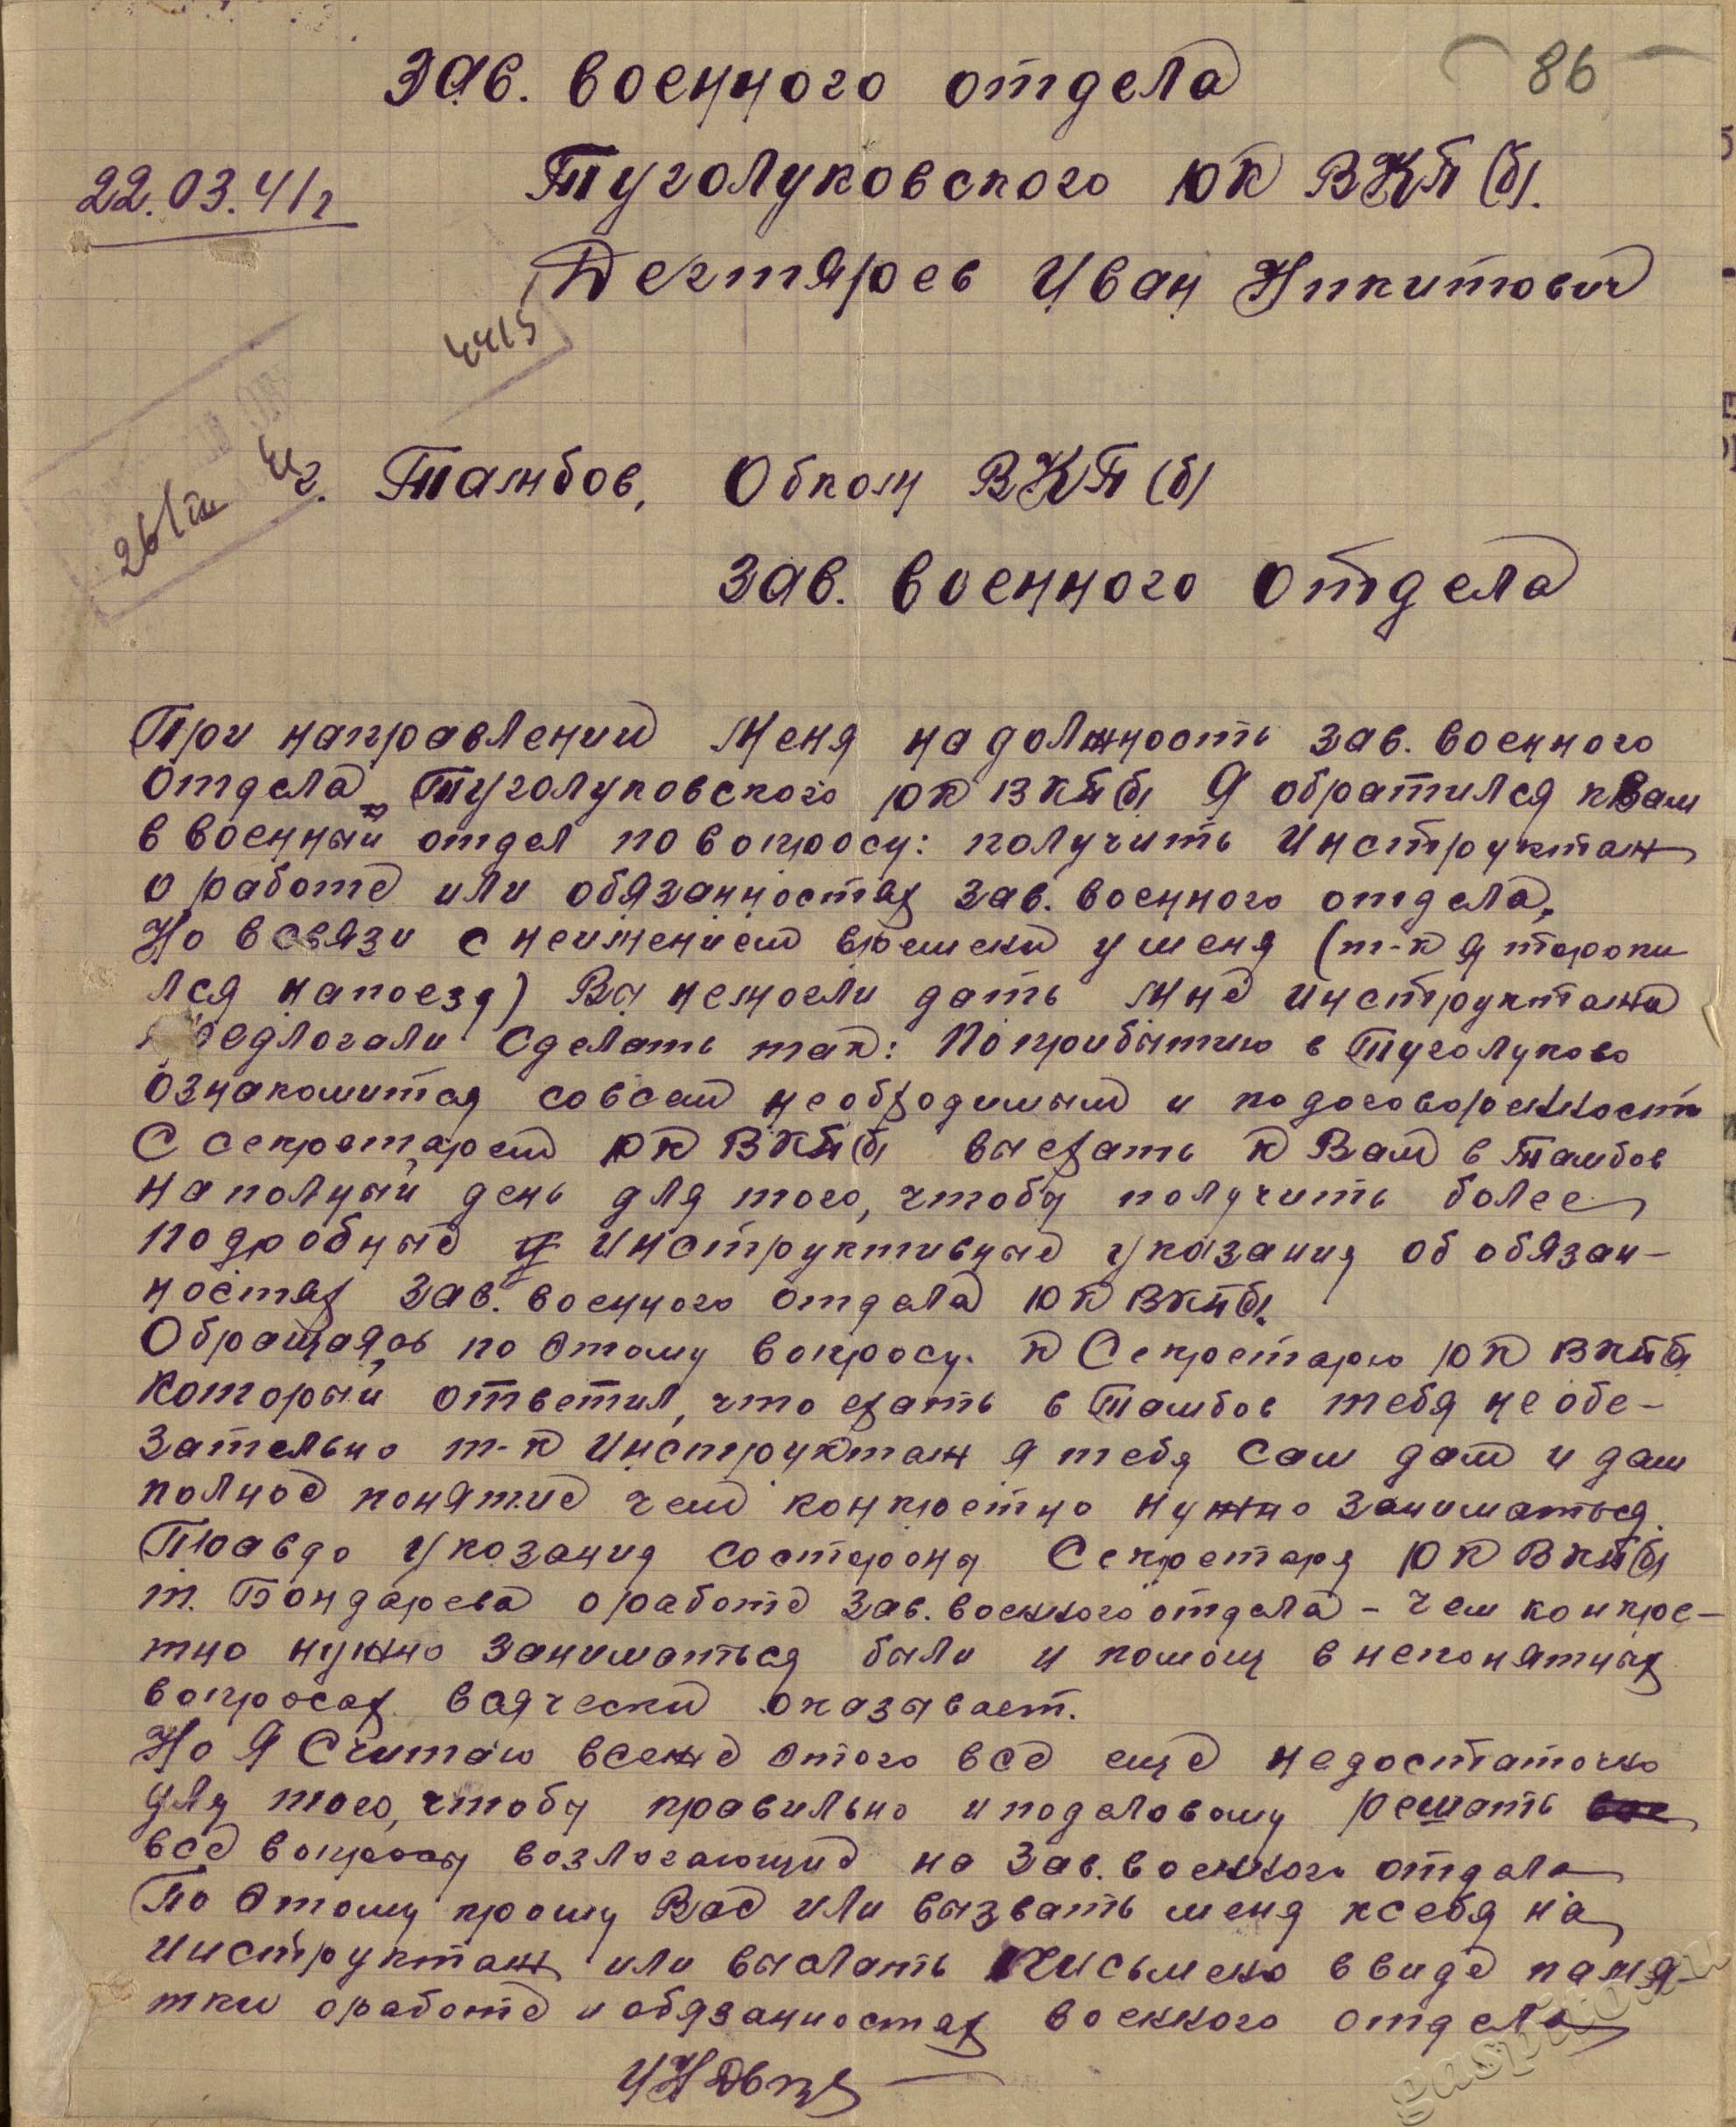 86
Зав. военного отдела
22.03.41г
Туголуковского РК ВКП(б).
Дегтярев Иван Никитович
4415
26/III 41
г. Тамбов, Обком ВКП(б)
Зав. военного отдела
При направлении меня на должность зав. военного
отдела Туголуковского РК ВКП(б) Я обратился к Вам
в военный отдел по вопросу: получить Инструктаж
о работе или обязанностях зав. военного отдела.
Но всвязи с неимением времени у меня (т-к я торопи
лся напоезд) Вы немогли дать мне инструктажа
предлогали сделать так: По прибытию в Туголуково
ознакомится совсем необходимым и подоговоренность
С секретарем РК ВКП(б) выехать к Вам в Тамбов
наполный день для того, чтобы получить более
подробные инструктивные указания об обязан-
ностях зав. военного отдела РК ВКП(б).
Обращаясь по этому вопросу к Секретарю РК ВКП(б)
который ответил, что ехать в Тамбов тебя необе-
зательно т-к Инструктаж я тебя сам дам и дам
полное понятие чем конкретно нужно заниматься.
Правдо указания состороны Секретаря РК ВКП(б)
т. Бондарева оработе зав. военного отдела - чем конкре-
тно нужно заниматься были и помощ внепонятных
вопросах всячески оказывает.
Но Я Считаю всеже этого все еще недостаточно
для того, чтобы правильно иподеловому решать
все вопросы возлогающие на Зав. военного отдела
По этому прошу Вас или вызвать меня ксебя на
инструктаж или выслать письмено ввиде памя-
тки оработе и обязанностях военного отдела
gaspito.ru